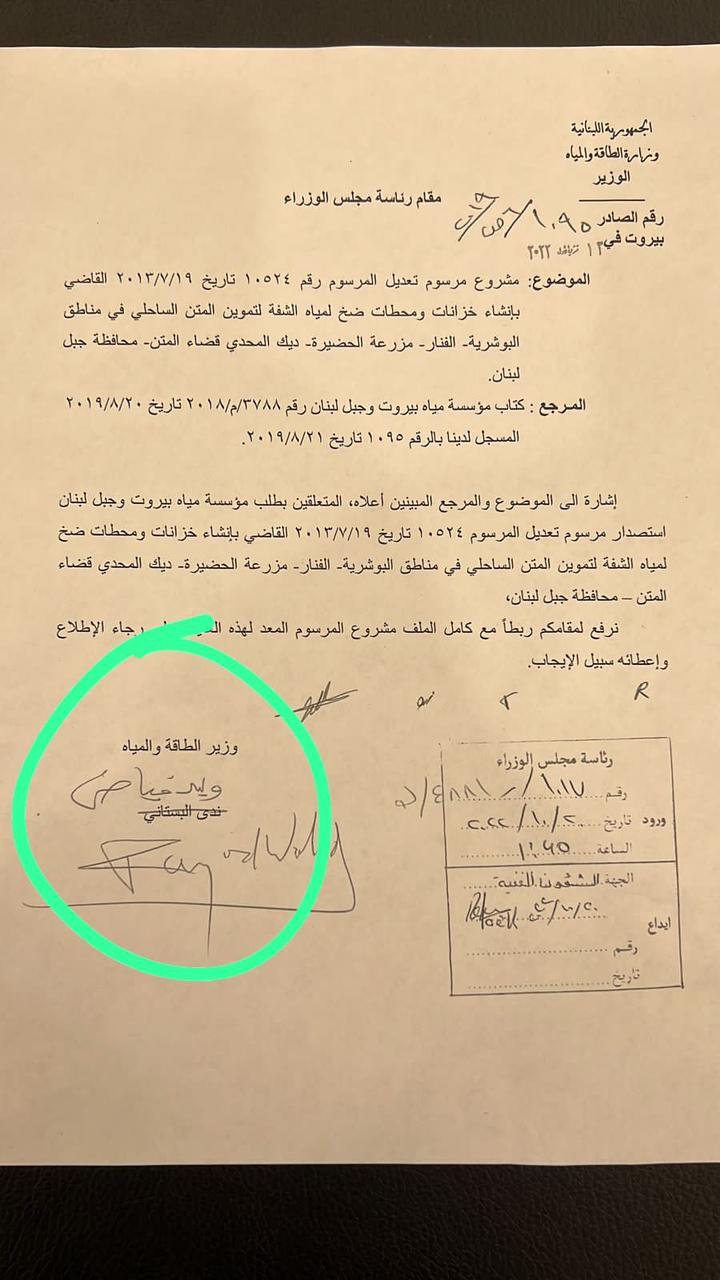 الجمهورية اللبنانية
وزارة الطاقة والمياه
الوزير
مقام رئاسة مجلس الوزراء
رقم الصادر ١٠٩٥/ص٦/١٩ت
بيروت في ١٣ ٢٠٢٢
الموضوع: مشروع مرسوم تعديل المرسوم رقم ١٠٥٢٤ تاريخ ٢٠١٣/٧/١٩ القاضي
بإنشاء خزانات ومحطات ضخ لمياه الشفة لتموين المتن الساحلي في مناطق
البوشرية- الفنار- مزرعة الحضيرة- ديك المحدي قضاء المتن- محافظة جبل
لبنان.
المرجع : كتاب مؤسسة مياه بيروت وجبل لبنان رقم ٣٧٨٨/م/٢٠١٨ تاريخ ٢٠١٩/٨/٢٠
المسجل لدينا بالرقم ١٠٩٥ تاريخ ٢٠١٩/٨/٢١.
إشارة الى الموضوع والمرجع المبينين أعلاه، المتعلقين بطلب مؤسسة مياه بيروت وجبل لبنان
استصدار مرسوم تعديل المرسوم ١٠٥٢٤ تاريخ ٢٠١٣/٧/١٩ القاضي بإنشاء خزانات ومحطات ضخ
لمياه الشفة لتموين المتن الساحلي في مناطق البوشرية- الفنار- مزرعة الحضيرة- ديك المحدي قضاء
المتن – محافظة جبل لبنان،
نرفع لمقامكم ربطاً مع كامل الملف مشروع المرسوم المعد لهذه رجاء الإطلاع
وإعطائه سبيل الإيجاب.
R
وزير الطاقة والمياه
وليد فياض
ندى البستاني
Fayad Walid
رئاسة مجلس الوزراء
رقم ١٠١٧/
ورود تاريخ ٢٠٢٢/١٠/٢٠
الساعة ١١،٤٥
الجهة الشؤون الفنية
ايداع
رقم
تاريخ